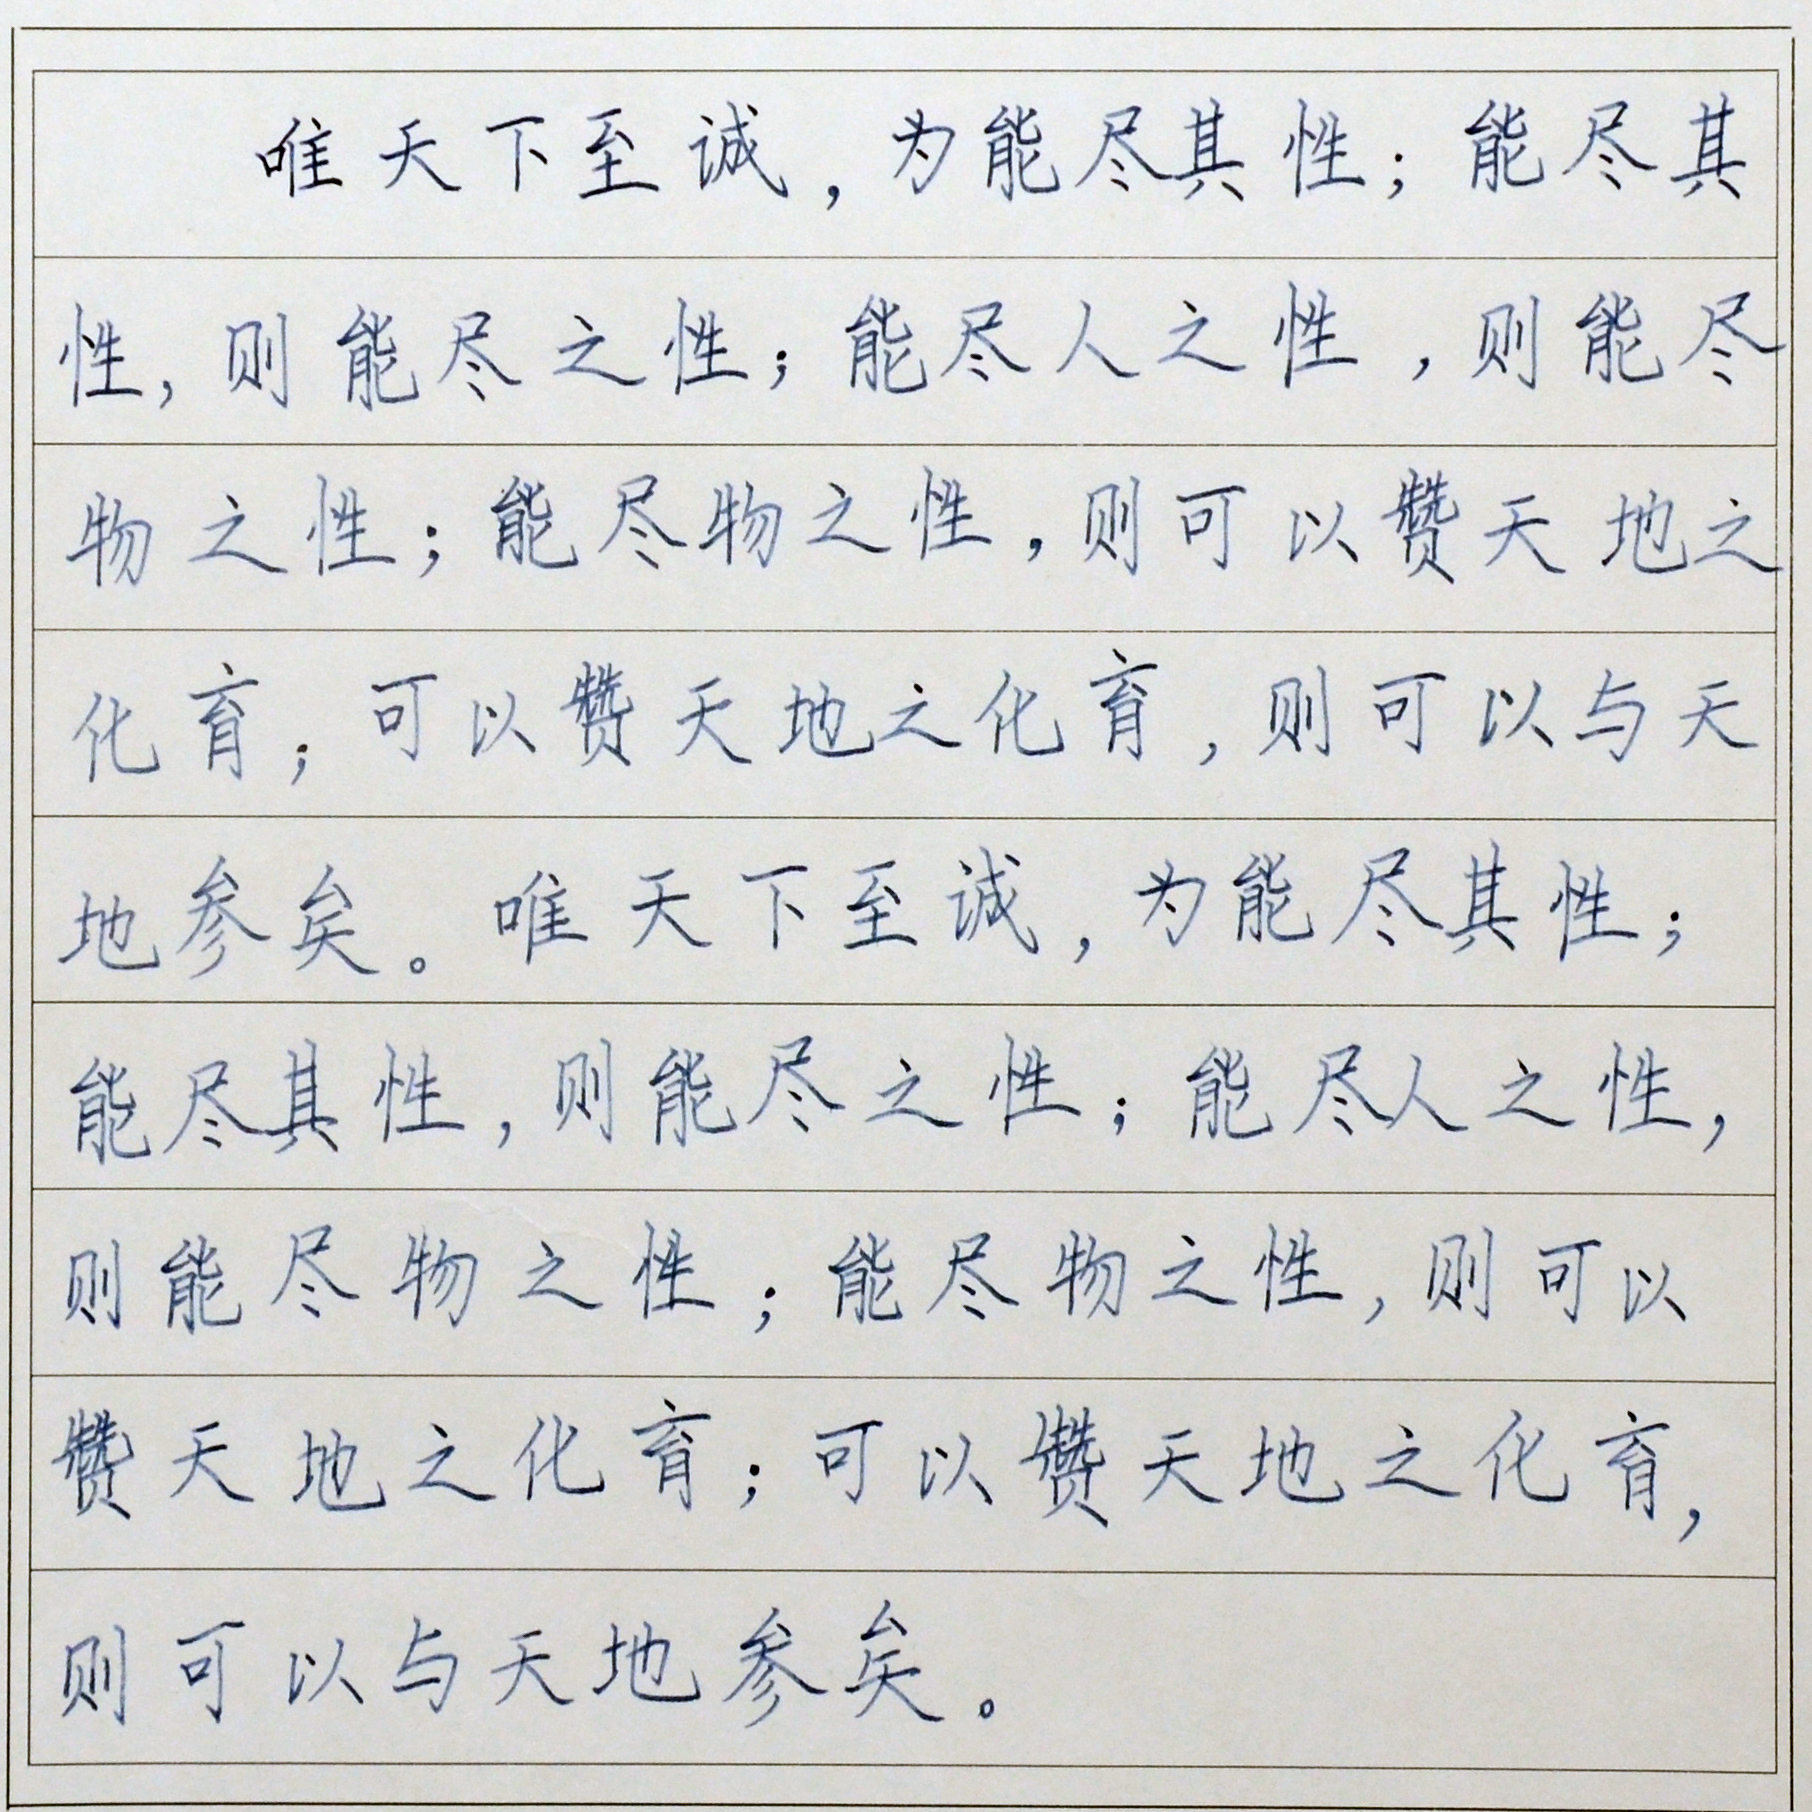 唯天下至诚，为能尽其性；能尽其
性，则能尽之性；能尽人之性，则能尽
物之性；能尽物之性，则可以赞天地之
化育；可以赞天地之化育，则可以与天
地参矣。唯天下至诚，为能尽其性；
能尽其性，则能尽之性；能尽人之性，
则能尽物之性；能尽物之性，则可以
赞天地之化育；可以赞天地之化育，
则可以与天地参矣。